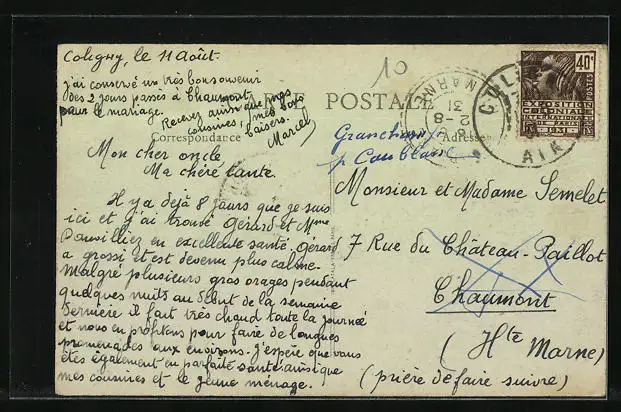 Coligny, le 11 Août.
j'ai conservé un très bon souvenir
des 2 jours passés à Chaumont
pour le mariage.
Recevez ainsi que mes
cousines, mes bons
baisers.
Marcel
CARTE POSTALE
Correspondance
Adresse
Mon cher oncle
Ma chère tante.
Il y a déjà 8 jours que je suis
ici et j'ai trouvé Gérard et Mme
en excellente santé. Gérard
a grossi et est devenu plus calme.
Malgré plusieurs gros orages pendant
quelques nuits au début de la semaine
dernière il fait très chaud toute la journée
et nous en profitons pour faire de longues
promenades aux environs. J'espère que vous
êtes également en parfaite santé ainsi que
mes cousines et le jeune ménage.
10
MARNE
28-8
31
AIN
40c
POSTES
EXPOSITION
COLONIALE
INTERNATIONALE
PARIS
1931
Monsieur et Madame Semelet
7 Rue du Château-Paillot
Chaumont
(Hte Marne)
(prière de faire suivre)